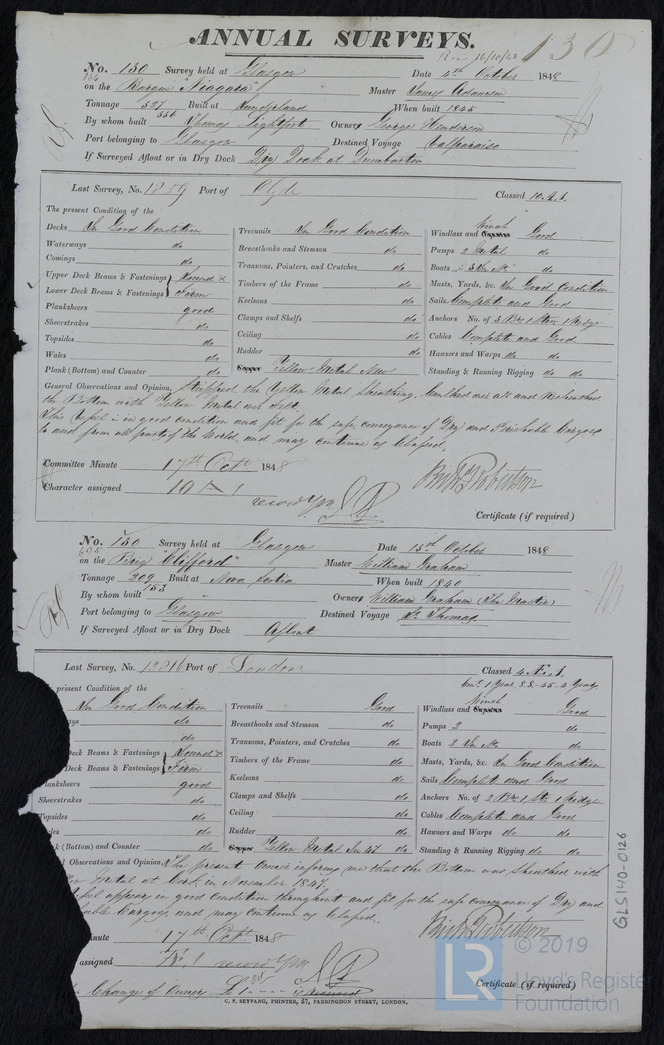 ANNUAL SURVEYS.
130
No. 130 Survey held at Glasgow Date 4th October 1848
on the Barque "Niagara" Master James Adamson
Tonnage 527 Built at Sunderland When built 1845
556
By whom built Thomas Lightfoot Owners George Henderson
Port belonging to Glasgow Destined Voyage Valparaiso
If Surveyed Afloat or in Dry Dock Dry Dock at Dumbarton
Last Survey, No. 1859 Port of Clyde Classed 10.A.1.
The present Condition of the
Decks In Good Condition Treenails In Good Condition Windlass and Winch Good
Waterways do Breasthooks and Stemson do Pumps 2 Metal do
Comings do Transoms, Pointers, and Crutches do Boats do
Upper Deck Beams & Fastenings Sound & Timbers of the Frame do Masts, Yards, &c. In Good Condition
Lower Deck Beams & Fastenings Firm Keelsons do Sails Complete and Good
Planksheers good Clamps and Shelfs do Anchors No. of 3 Br 1 Strm 1 Kedge
Sheerstrakes do Ceiling do Cables Complete and Good
Topsides do Rudder do Hawsers and Warps do do
Wales do Yellow Metal New Standing & Running Rigging do do
Plank (Bottom) and Counter do
General Observations and Opinion, Stripped the Yellow Metal Sheathing, Caulked over all and Resheathed
the Bottom with Yellow Metal over felt.
This Vessel is in good condition and fit for the safe conveyance of Dry and Perishable Cargoes
to and from all parts of the World, and may continue as Classed.
Committee Minute 17th Octr 1848
Character assigned 10 A 1
Robertson
Certificate (if required)
No. 130 Survey held at Glasgow Date 15th October 1848
on the Brig "Clifford" Master William Graham
Tonnage 209 Built at Nova Scotia When built 1840
153
By whom built Owners William Graham (The Master)
Port belonging to Glasgow Destined Voyage St. Thomas
If Surveyed Afloat or in Dry Dock Afloat
Last Survey, No. Port of London Classed
present Condition of the
In Good Condition Treenails Good Windlass and Winch Good
do Breasthooks and Stemson do Pumps 2 do
do Transoms, Pointers, and Crutches do Boats 2 do
Deck Beams & Fastenings Sound & Timbers of the Frame do Masts, Yards, &c. In Good Condition
Deck Beams & Fastenings Firm Keelsons do Sails Complete and Good
Planksheers good Clamps and Shelfs do Anchors No. of 2 Br 1 Str 1 Kedge
Sheerstrakes do Ceiling do Cables Complete and Good
Topsides do Rudder do Hawsers and Warps do do
do Yellow Metal In 47 do Standing & Running Rigging do do
(Bottom) and Counter do
Observations and Opinion, The present Owner informs me that the Bottom was sheathed with
Metal at Cork in November 1847.
appears in good Condition throughout and fit for the safe conveyance of Dry and
Cargoes, and may continue as Classed.
17th Octr 1848
Robertson
assigned
Change of Owner
Certificate (if required)
C. F. SEYFANG, PRINTER, 57, FARRINGDON STREET, LONDON.
GLS140-0126
© 2019
LR
Lloyd's Register
Foundation